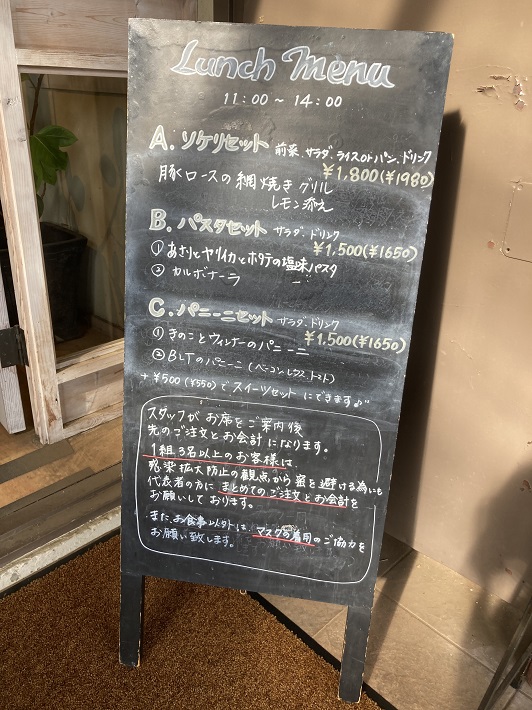 Lunch Menu
11:00～14:00
A. ソケリセット 前菜、サラダ、ライスorパン、ドリンク
¥1,800(¥1980)
豚ロースの網焼きグリル
レモン添え
B. パスタセット サラダ、ドリンク
¥1,500(¥1650)
① あさりとヤリイカとホタテの塩味パスタ
② カルボナーラ
C. パニーニセット サラダ、ドリンク
¥1,500(¥1650)
① きのことウィンナーのパニーニ
② BLTのパニーニ(ベーコン、レタス、トマト)
+ ¥500(¥550)でスイーツセットにできます♪
スタッフがお席をご案内後
先のご注文とお会計になります。
1組3名以上のお客様は、
感染拡大防止の観点から密を避ける為にも
代表者の方にまとめてのご注文とお会計を
お願いしております。
また、お食事以外は、マスクの着用のご協力を
お願い致します。